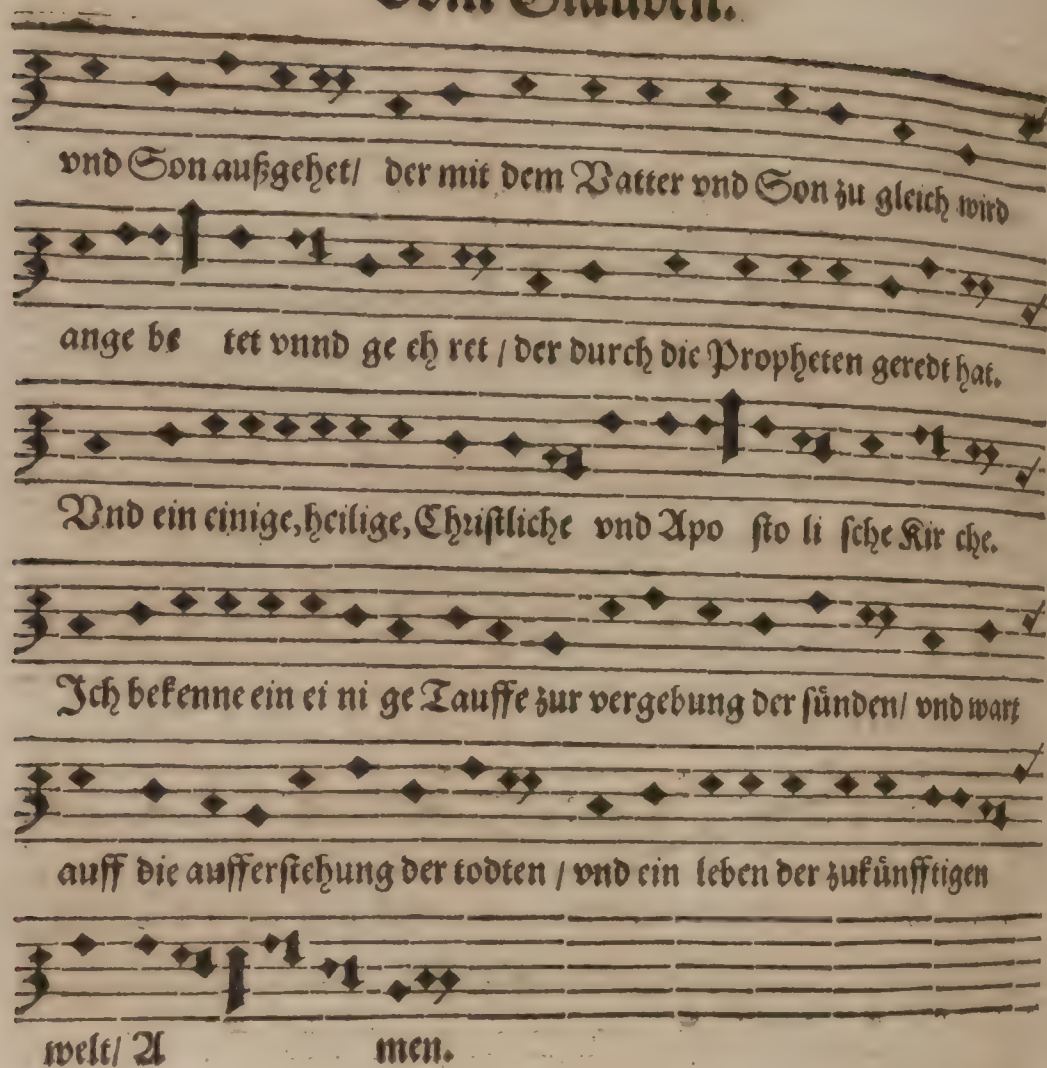 Vom Glauben.
vnd Son außgehet/ der mit dem Vatter vnd Son zu gleich wird
ange be tet vnnd ge eh ret / der durch die Propheten geredt hat.
Vnd ein einige, heilige, Christliche vnd Apo sto li sche Kir che.
Ich bekenne ein ei ni ge Tauffe zur vergebung der sünden/ vnd wart
auff die aufferstehung der todten / vnd ein leben der zukünfftigen
welt/ A men.